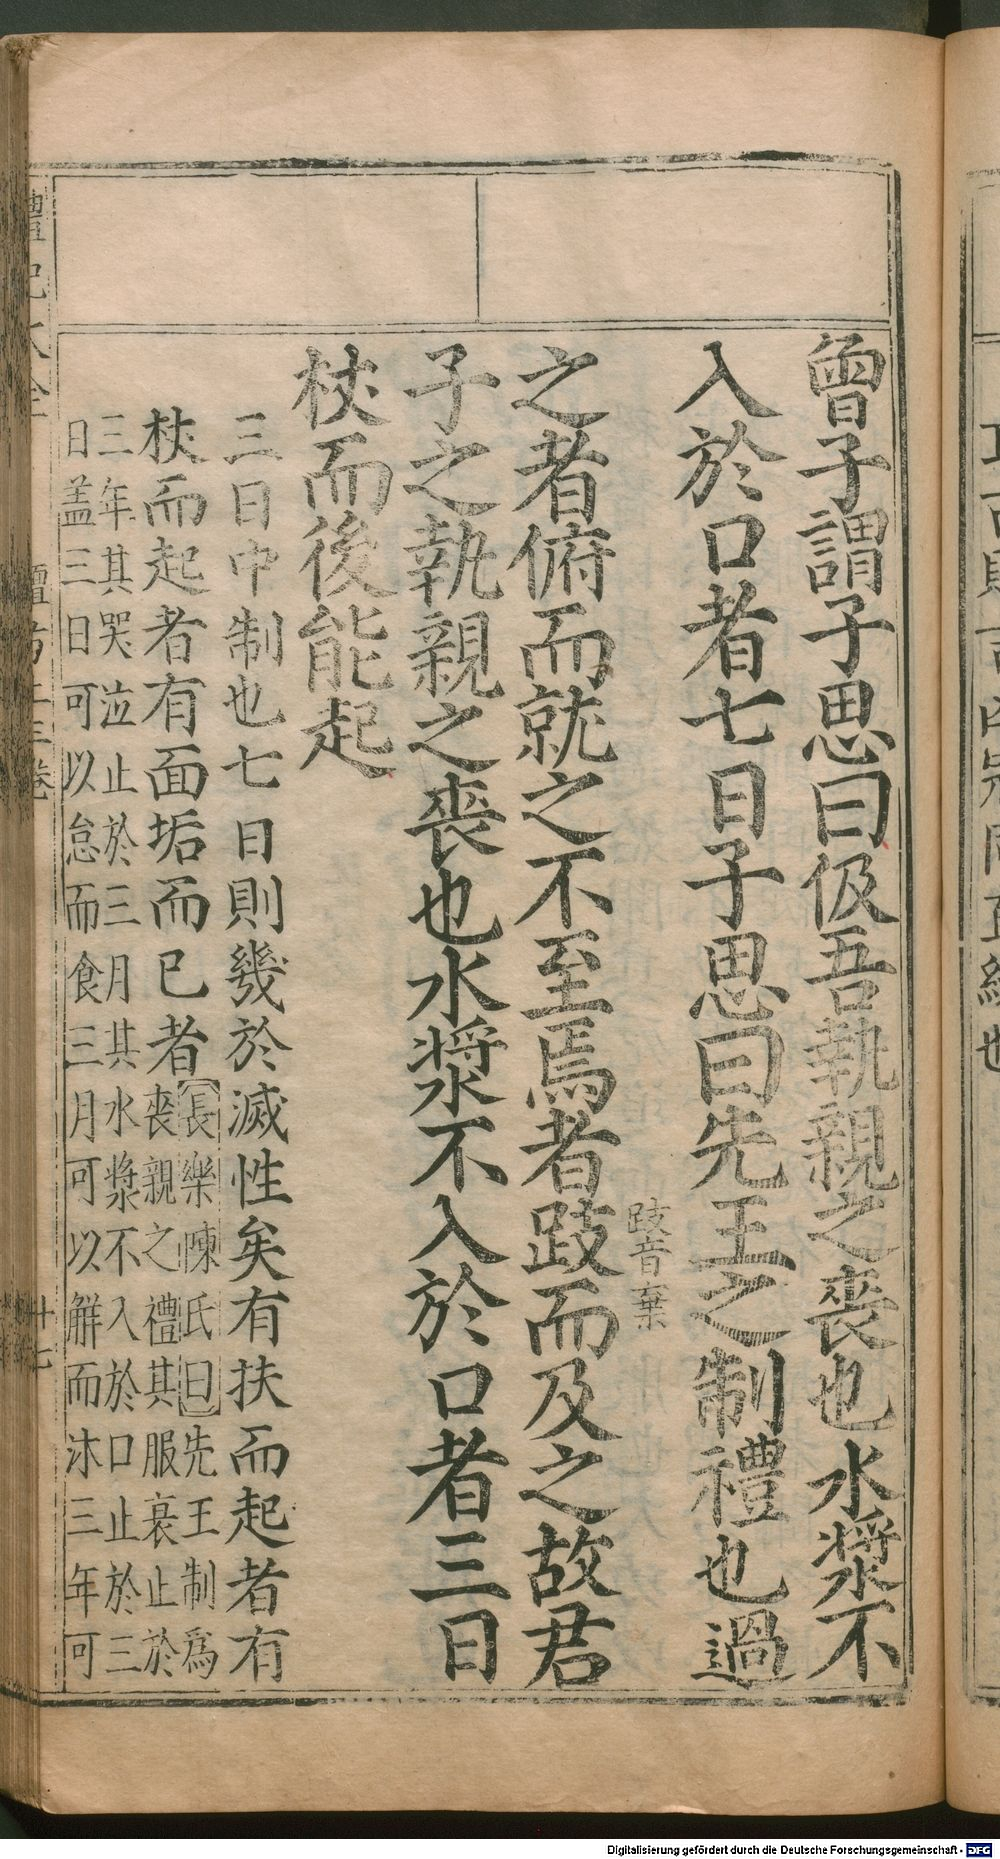 曾子謂子思曰伋吾執親之喪也水漿不
入於口者七日子思曰先王之制禮也過
跂音棄
之者俯而就之不至焉者跂而及之故君
子之執親之喪也水漿不入於口者三日
杖而後能起
三日中制也七日則幾於滅性矣有扶而起者有
杖而起者有面垢而已者
長樂陳氏曰先王制為
喪親之禮其服衰止於
三年其哭泣止於三月其水漿不入於口止於三
日盖三日可以怠而食三月可以解而沐三年可
禮記大全
檀弓上三卷
十七
Digitalisierung gefördert durch die Deutsche Forschungsgemeinschaft - DFG